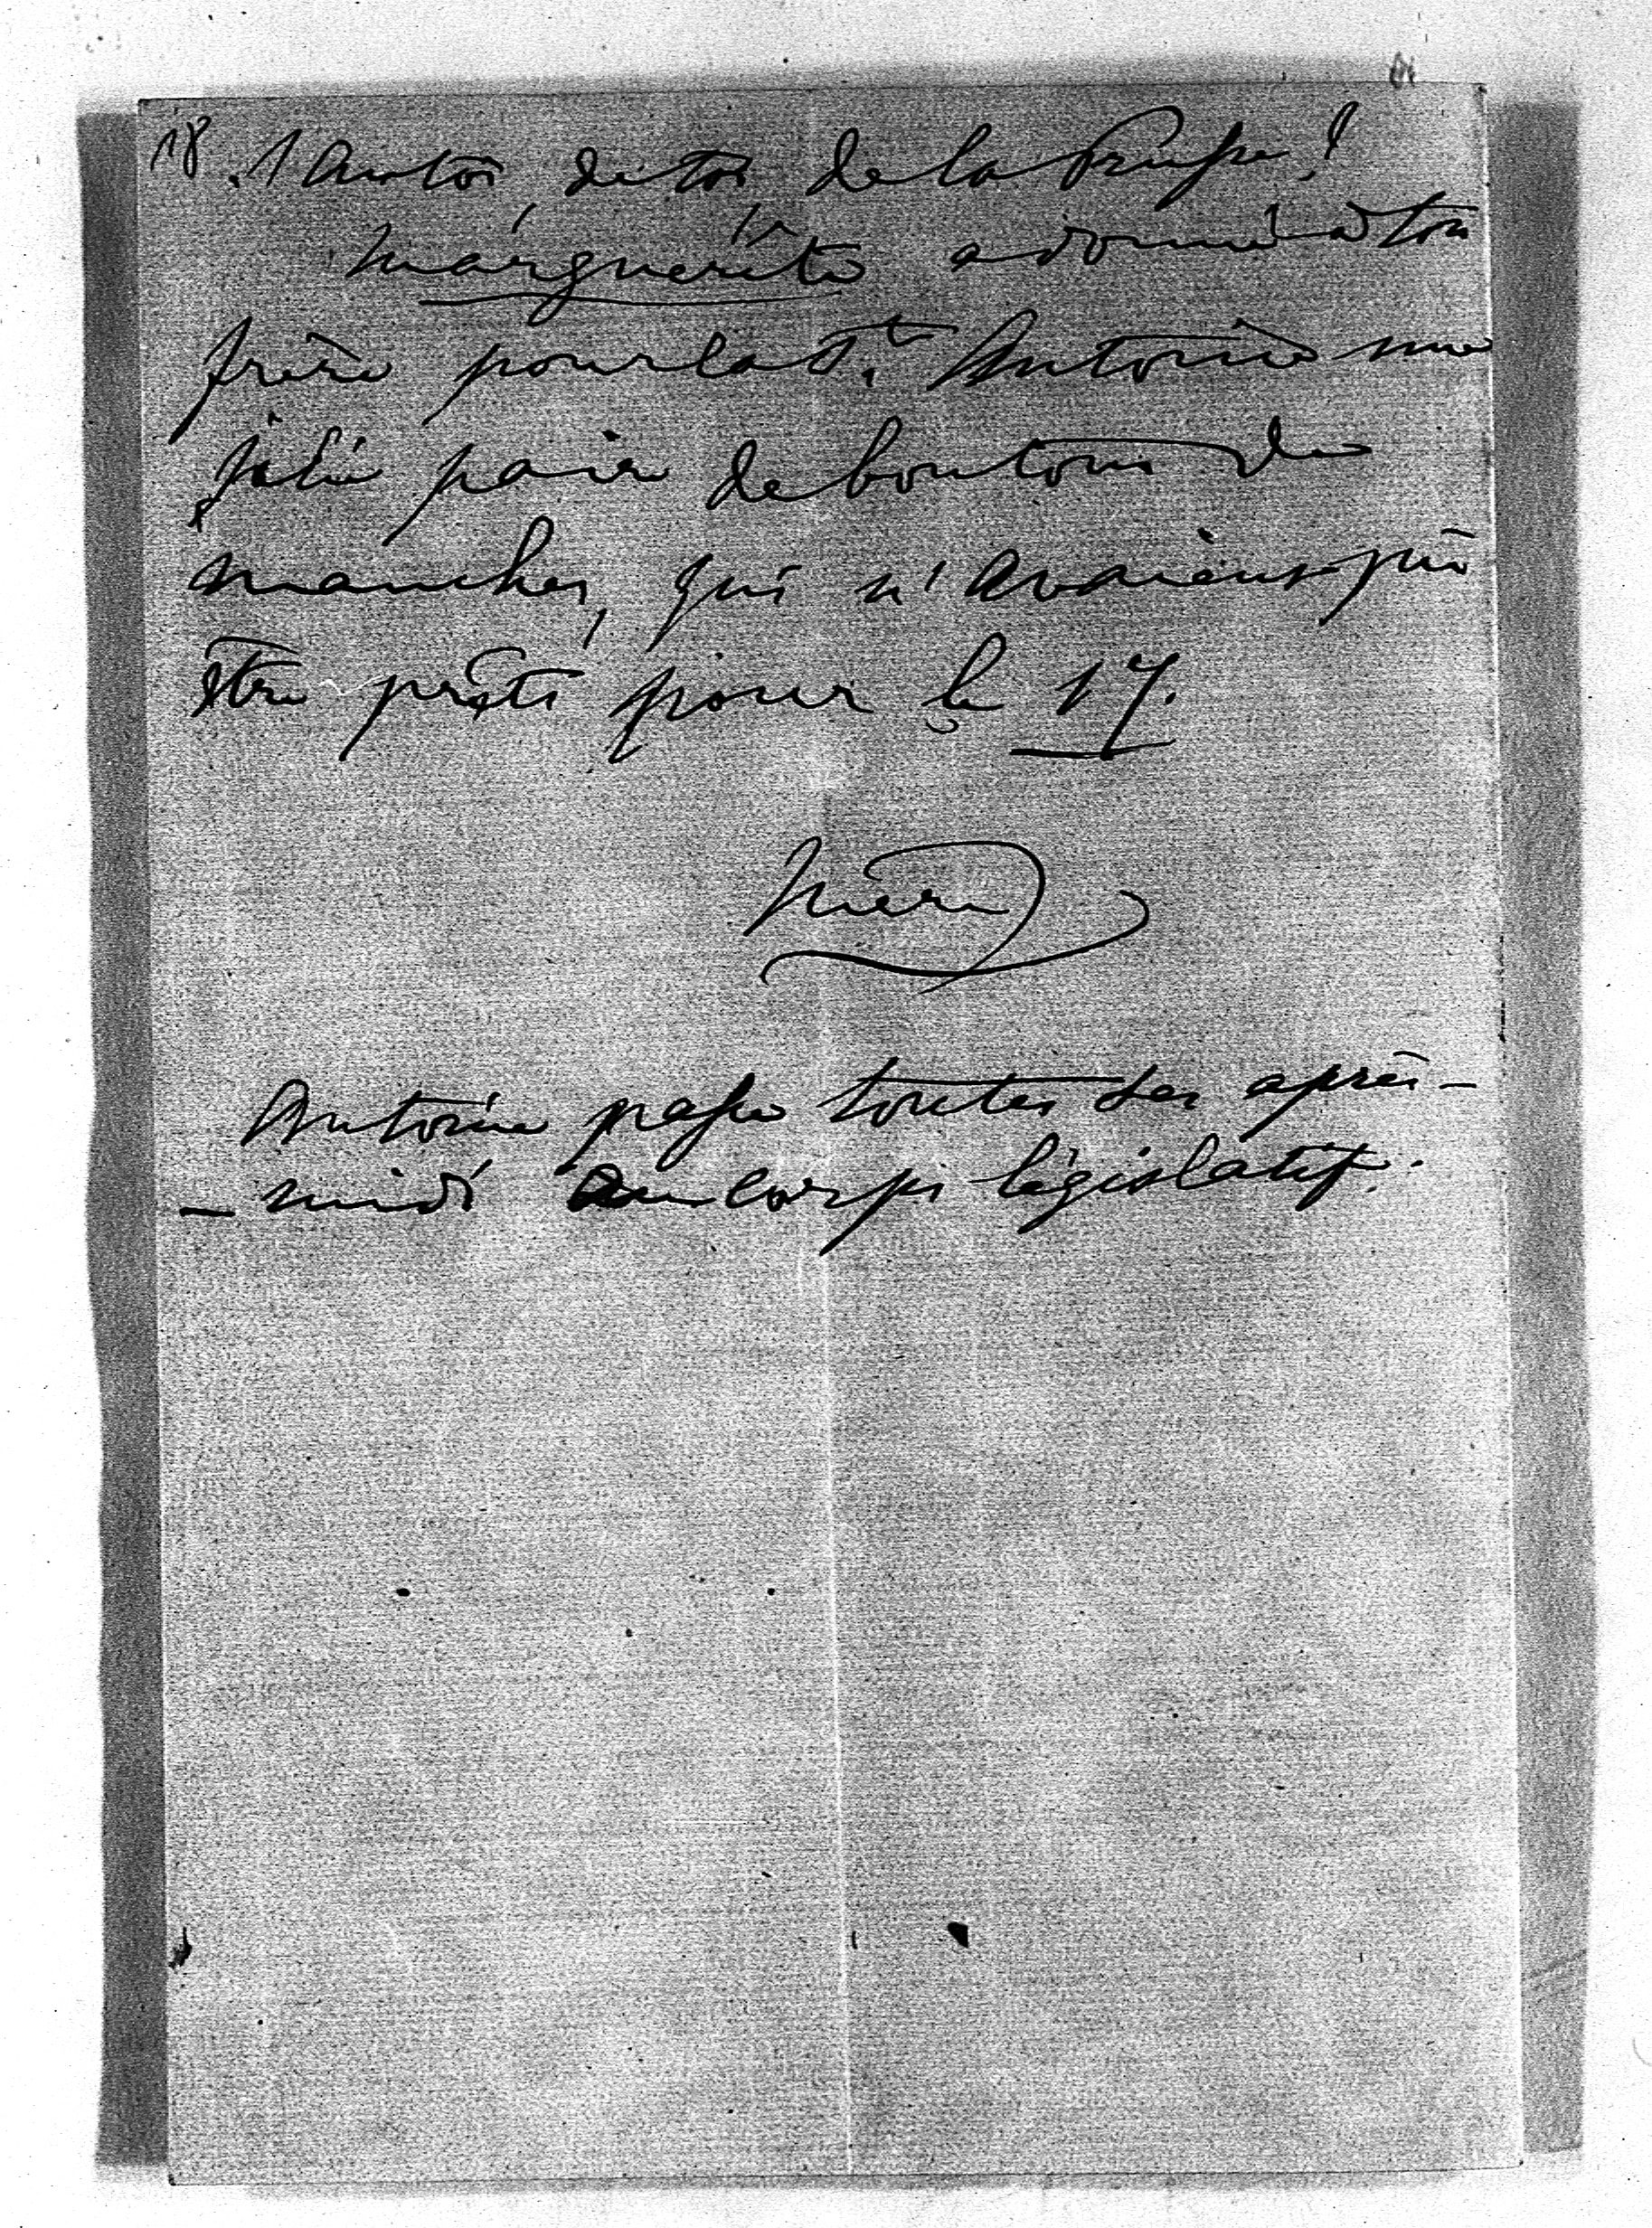 18
de toi de la Prusse!
Marguerite a donné à ton
frère pour la St. Antoine une
jolie paire de boutons de
manches, qui n'avaient pû
être prêts pour le 17.
Mère
Antoine passe toutes ses après-
-midi au Corps législatif.